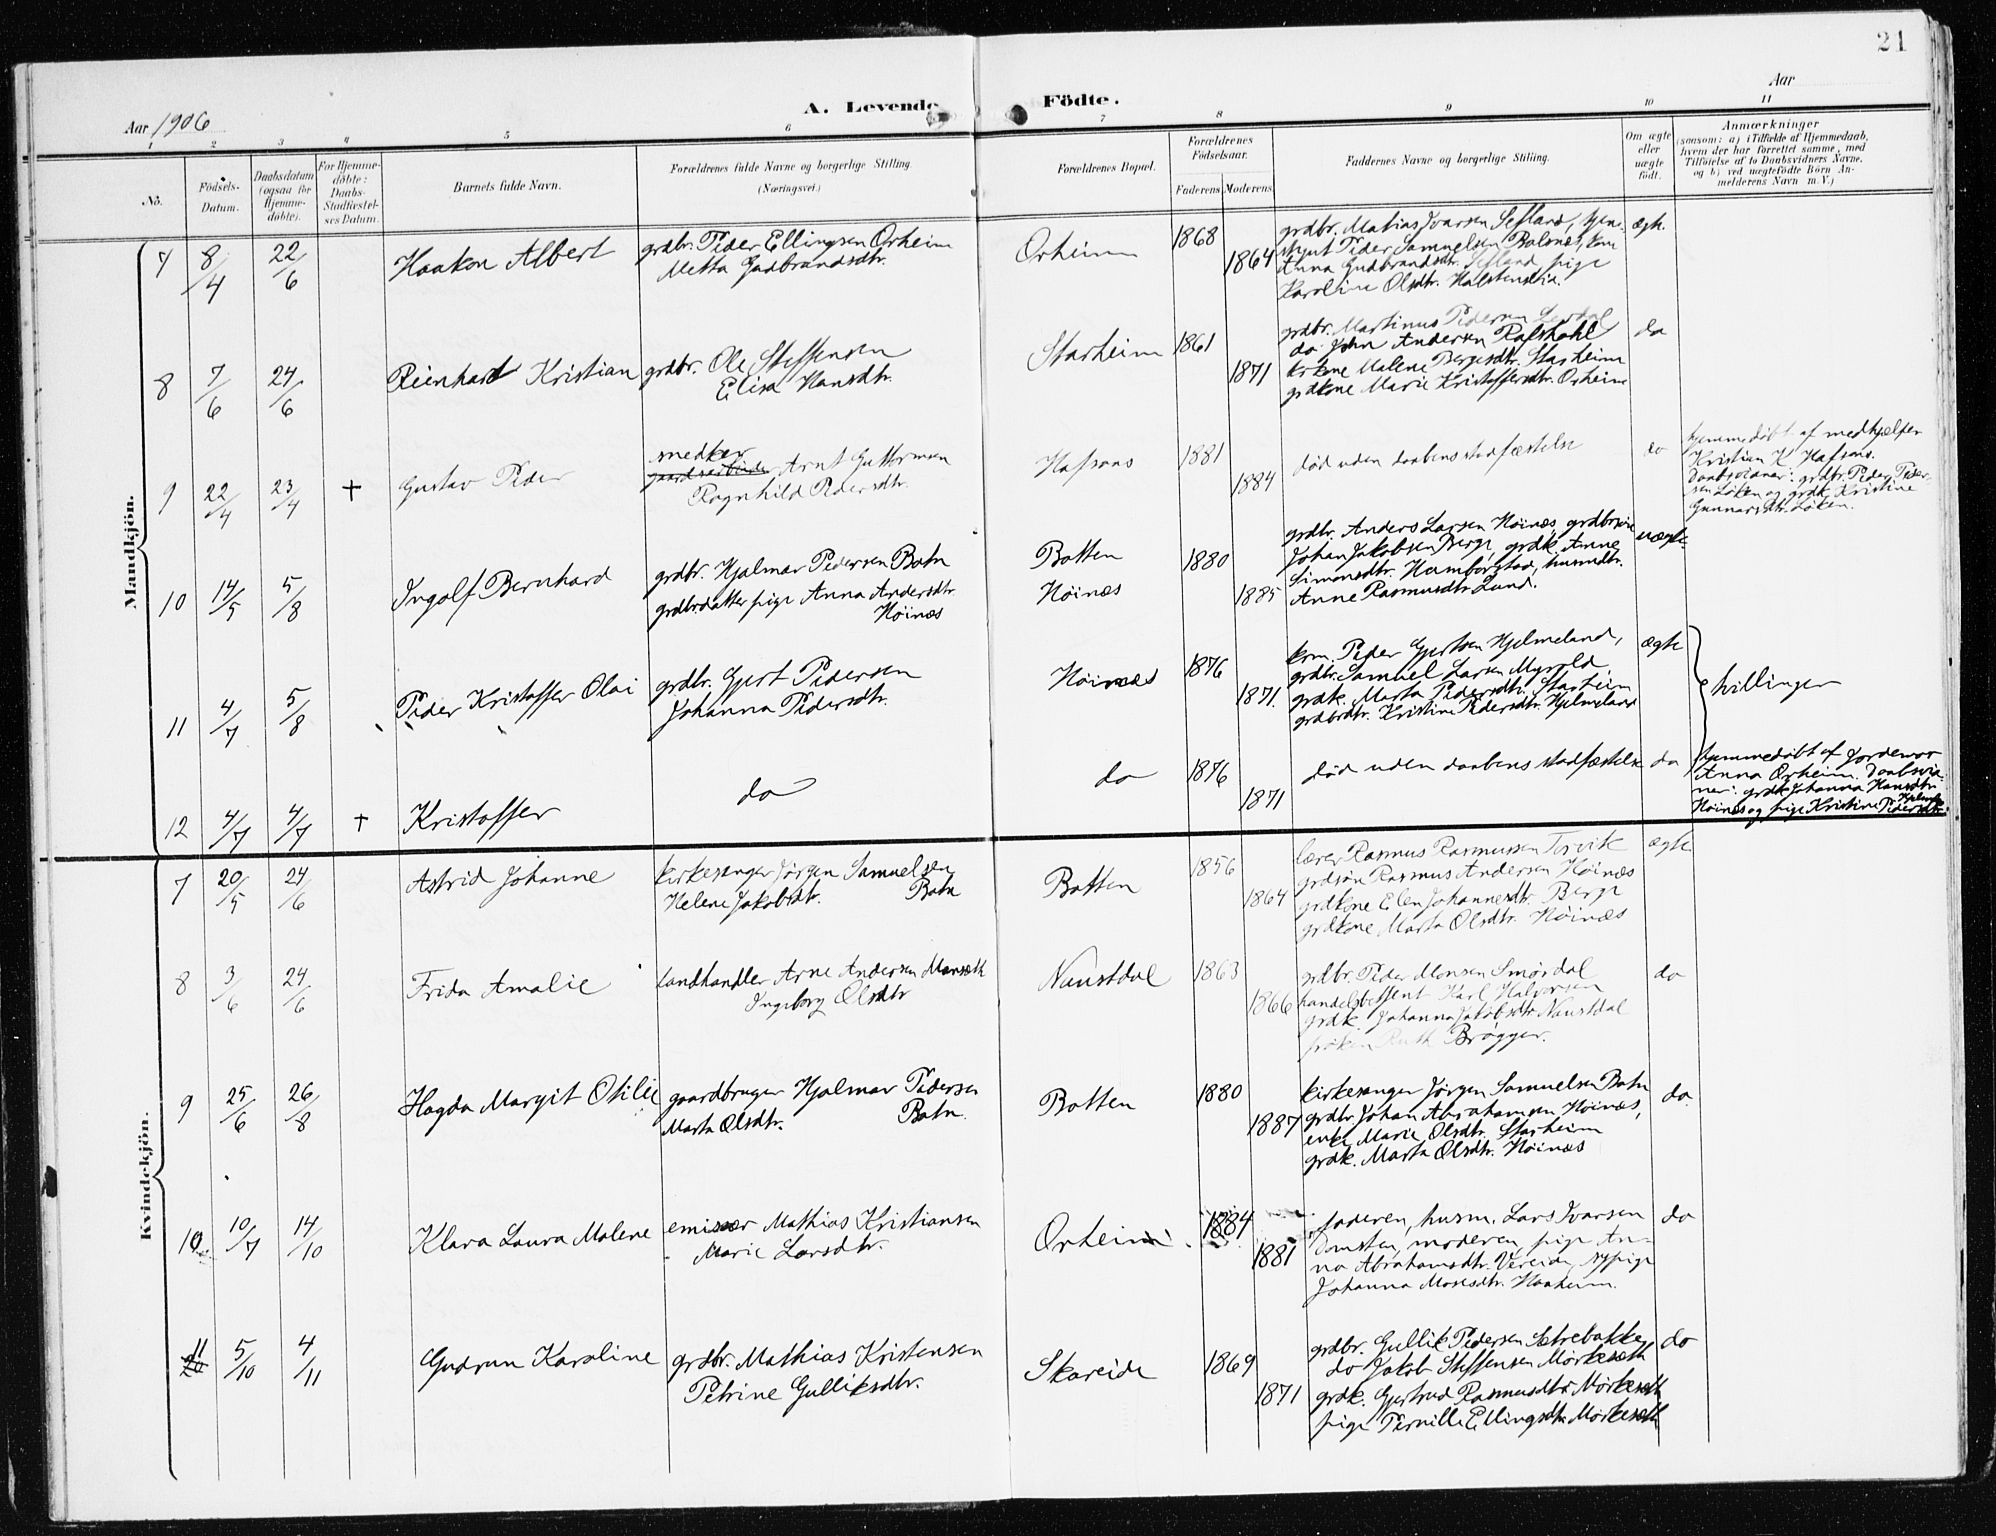 21
Aar 1906
A. Levende Födte.
Aar
1 2 3 4 5 6 7 8 9 10 11
No.
Födsels-Datum.
Daabsdatum (ogsaa for Hjemme-döbte).
For Hjemme-döbte: Daabs-Stadfæstel-ses Datum.
Barnets fulde Navn.
Forældrenes fulde Navne og borgerlige Stilling. (Næringsvei.)
Forældrenes Bopæl.
Forældrenes Födselsaar.
Faderens. Moderens.
Faddernes Navne og borgerlige Stilling.
Om ægte eller uægte födt.
Anmærkninger
(saasom: a) i Tilfælde af Hjemmedaab, hvem der har forrettet samme, med Tilföielse af to Daabsvidners Navne, og b) ved uægtefödte Börn An-melderens Navn m. V.)
Mandkjön.
7 8/4 22/6 Haakon Albert
grdbr. Peder Ellingsen Orheim
Metta Gudbrandsdtr.
Orheim 1868 1864
grdbr. Mathias Ivarsen Sefland,
Peder Samuelsen
Anna Gudbrandsdtr. Sefland, pige
Karoline Olsdtr. Halstenslid.
ægte.
8 7/6 24/6 Reinhard Kristian
grdbr. Ole Steffensen
Elisa Hansdtr.
Starheim 1861 1871
grdbr. Martinus Pedersen
do John Andersen Rafstahl
Malene Børgesdtr. Starheim
grdkone Marie Kristoffersdtr. Orheim
do
9 22/4 23/4 + Gustav Peder
snedker
gaardsarbeider Arnt Guttormsen
Ragnhild Pedersdtr.
Hafsaas 1881 1884
død uden daabens stadfæstelse
do
hjemmedøbt af medhjælper
Kristian K. Hafsaas.
Daabsvidner: grdbr. Peder Peder-
sen Løken og grdk. Kristine
Gunnarsdtr. Løken.
10 14/5 5/8 Ingolf Bernhard
grdbr. Hjalmar Pedersen Botn
grdbrdatter pige Anna Andersdtr.
Høinæs
Botten
Høinæs
1880 1885
grdbr. Anders Larsen Høinæs, grdbrsøn
Johan Jakobsen Berge, grdk. Anne
Simonsdtr. Hamborstad, husmdtr.
Anne Rasmusdtr. Lund.
uægte.
11 4/7 5/8 Peder Kristoffer Olai
grdbr. Gjert Pedersen
Johanna Pedersdtr.
Høinæs 1876 1871.
Peder Gjertsen Hjelmeland,
grdbr. Samuel Larsen Myrold,
grdk. Marta Pedersdtr. Starheim
grdbrdtr. Kristine Pedersdtr. Hjelmeland
ægte
tvillinger
12 4/7 4/7 + Kristoffer
do
do 1876 1871
død uden daabens stadfæstelse do
hjemmedøbt af Jordemor
Anna Orheim. Daabsvid-
ner: grdk. Johanna Hansdtr.
Høinæs og pige Kristine Pedersdtr.
Kvindekjön.
7 20/5 24/6 Astrid Johanne
kirkesanger Jørgen Samuelsen
Helene Jakobsdtr. Botn
Botten 1856 1864
lærer Rasmus Rasmussen Torvik
grdsøn Rasmus Andersen Høinæs
grdkone Elen Johannesdtr. Berge
grdkone Marta Olsdtr. Høinæs
ægte
8 3/6 24/6 Frida Amalie
landhandler Arne Andersen
Ingeborg Olsdtr
Naustdal 1863 1866
grdbr. Peder Monsen Smørdal
handelsbetjent Karl Halvorsen
grdk. Johanna Jakobsdtr Naustdal
frøken Ruth Brøgger.
do
9 25/6 26/8 Hagda Margit Otilie
gaardbruger Hjalmar Pedersen
Marta Olsdtr. Botn.
Botten 1880 1887
kirkesanger Jørgen Samuelsen Botn
grdbr. Johan Abrahamsen Høinæs,
enke Marie Olsdtr. Starheim
grdk. Marta Olsdtr. Høinæs
do.
10 10/7 14/10 Klara Laura Malene
emissær Mathias Kristiansen
Marie Larsdtr.
Orheim. 1884 1881
faderen, husm. Lars Ivarsen
Domsten, moderen, pige An-
na Abrahamsdtr. Vereide, sypige
Johanna Monsdtr. Naaheim.
do
11 5/10 4/11 Gudrun Karoline
grdbr. Mathias Kristensen
Petrine Gulliksdtr.
Skareide 1869 1871
grdbr. Gullik Pedersen Sætrebakke
do Jakob Steffensen Mørkesæth
grdk. Gjertrud Rasmusdtr Mørkesæth
pige Pernille Ellingsdtr. Mørkesæth
do